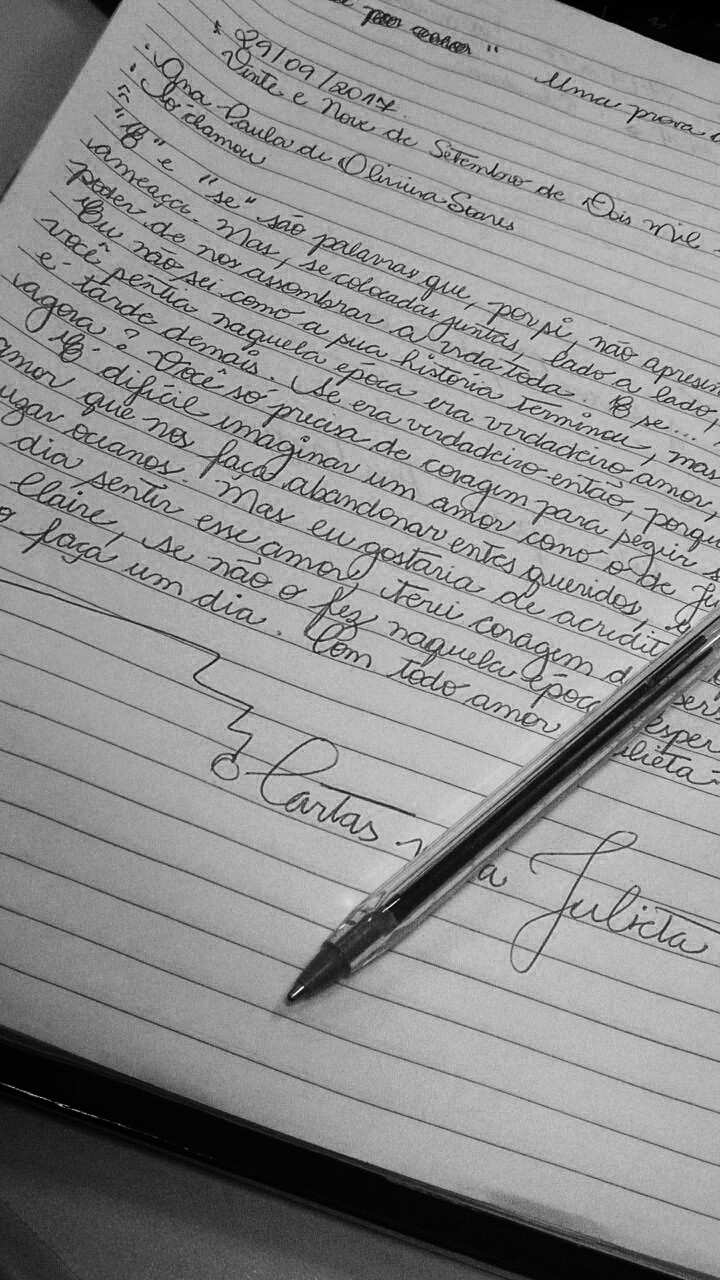 por amor" Uma prova
· 29/09/2017.
Vinte e Nove de Setembro de Dois mil
· Ana Paula de Oliveira Soares
· Já chamou
"E" e "se" são palavras que, por si, não apresen
ameaça. Mas, se colocadas juntas, lado a lado,
poder de nos assombrar a vida toda. E se...
Eu não sei como a sua história terminou, mas
você sentia naquela época era verdadeiro amor,
é tarde demais. Se era verdadeiro então, porqu
agora? Você só precisa de coragem para seguir s
E difícil imaginar um amor como o de Ju
amor que nos faça abandonar entes queridos,
uzar oceanos. Mas eu gostaria de acredit
dia sentir esse amor, terei coragem d
Claire, se não o fez naquela époc esper
o faça um dia. Com todo amor ulieta
Cartas a Julieta